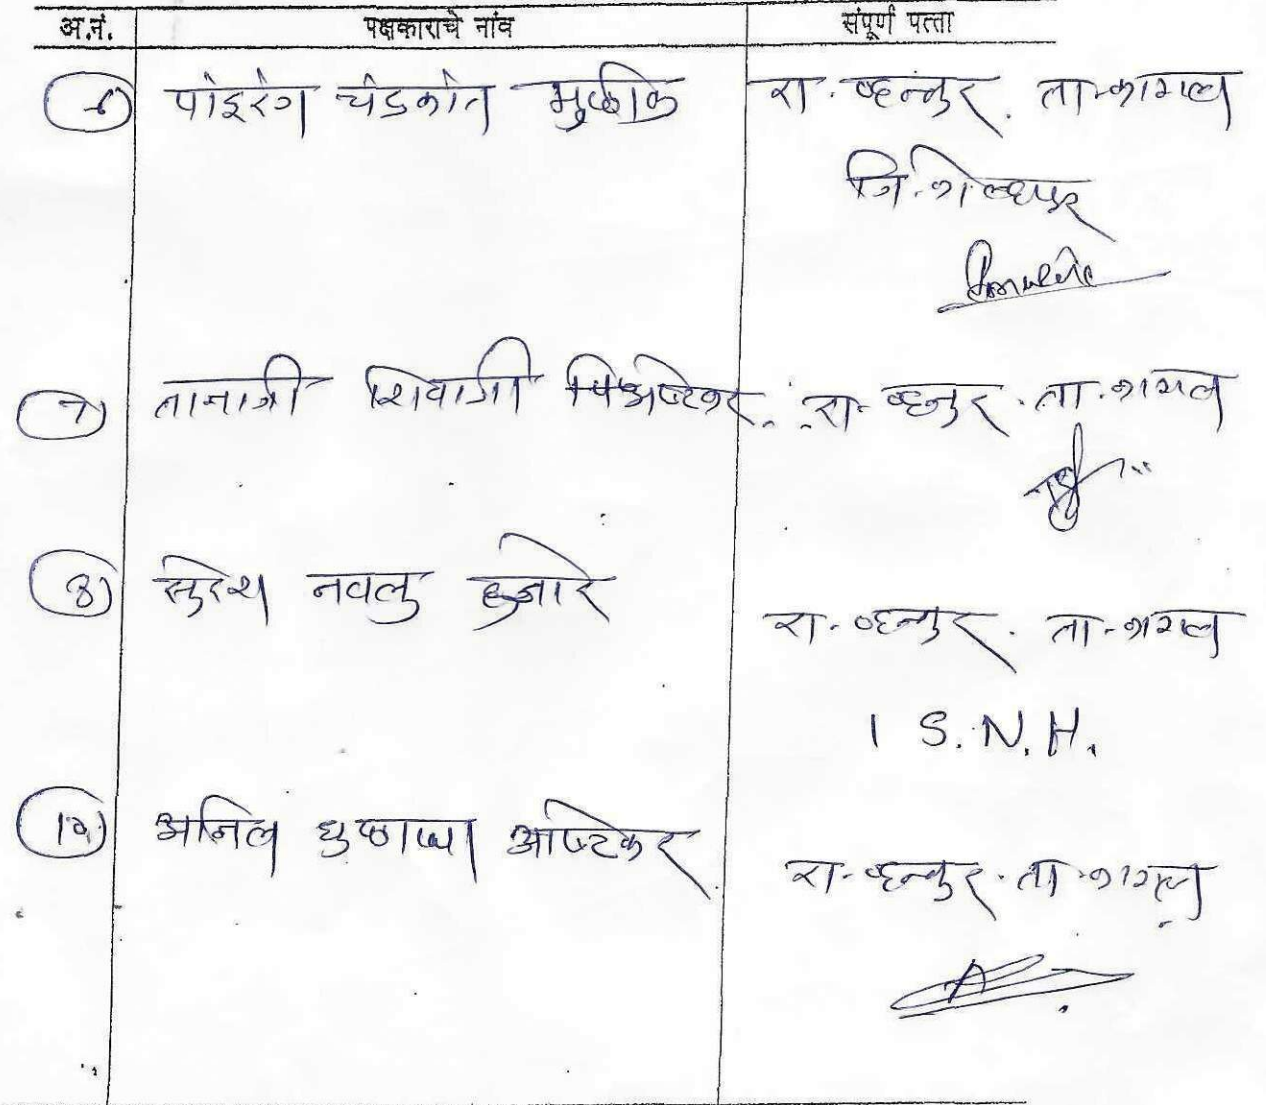 अ.नं. पक्षकाराचे नांव संपूर्ण पत्ता
पांडुरंग चंद्रकांत मुळीक रा. व्हन्नुर. ता-कागल
जि. कोल्हापूर
तानाजी शिवाजी रा- व्हन्नुर. ता. कागल
सुरेश नवलु हजारे
रा- व्हन्नुर. ता-कागल
S. N. H.
अनिल आष्टेकर
रा- व्हन्नुर. ता. कागल